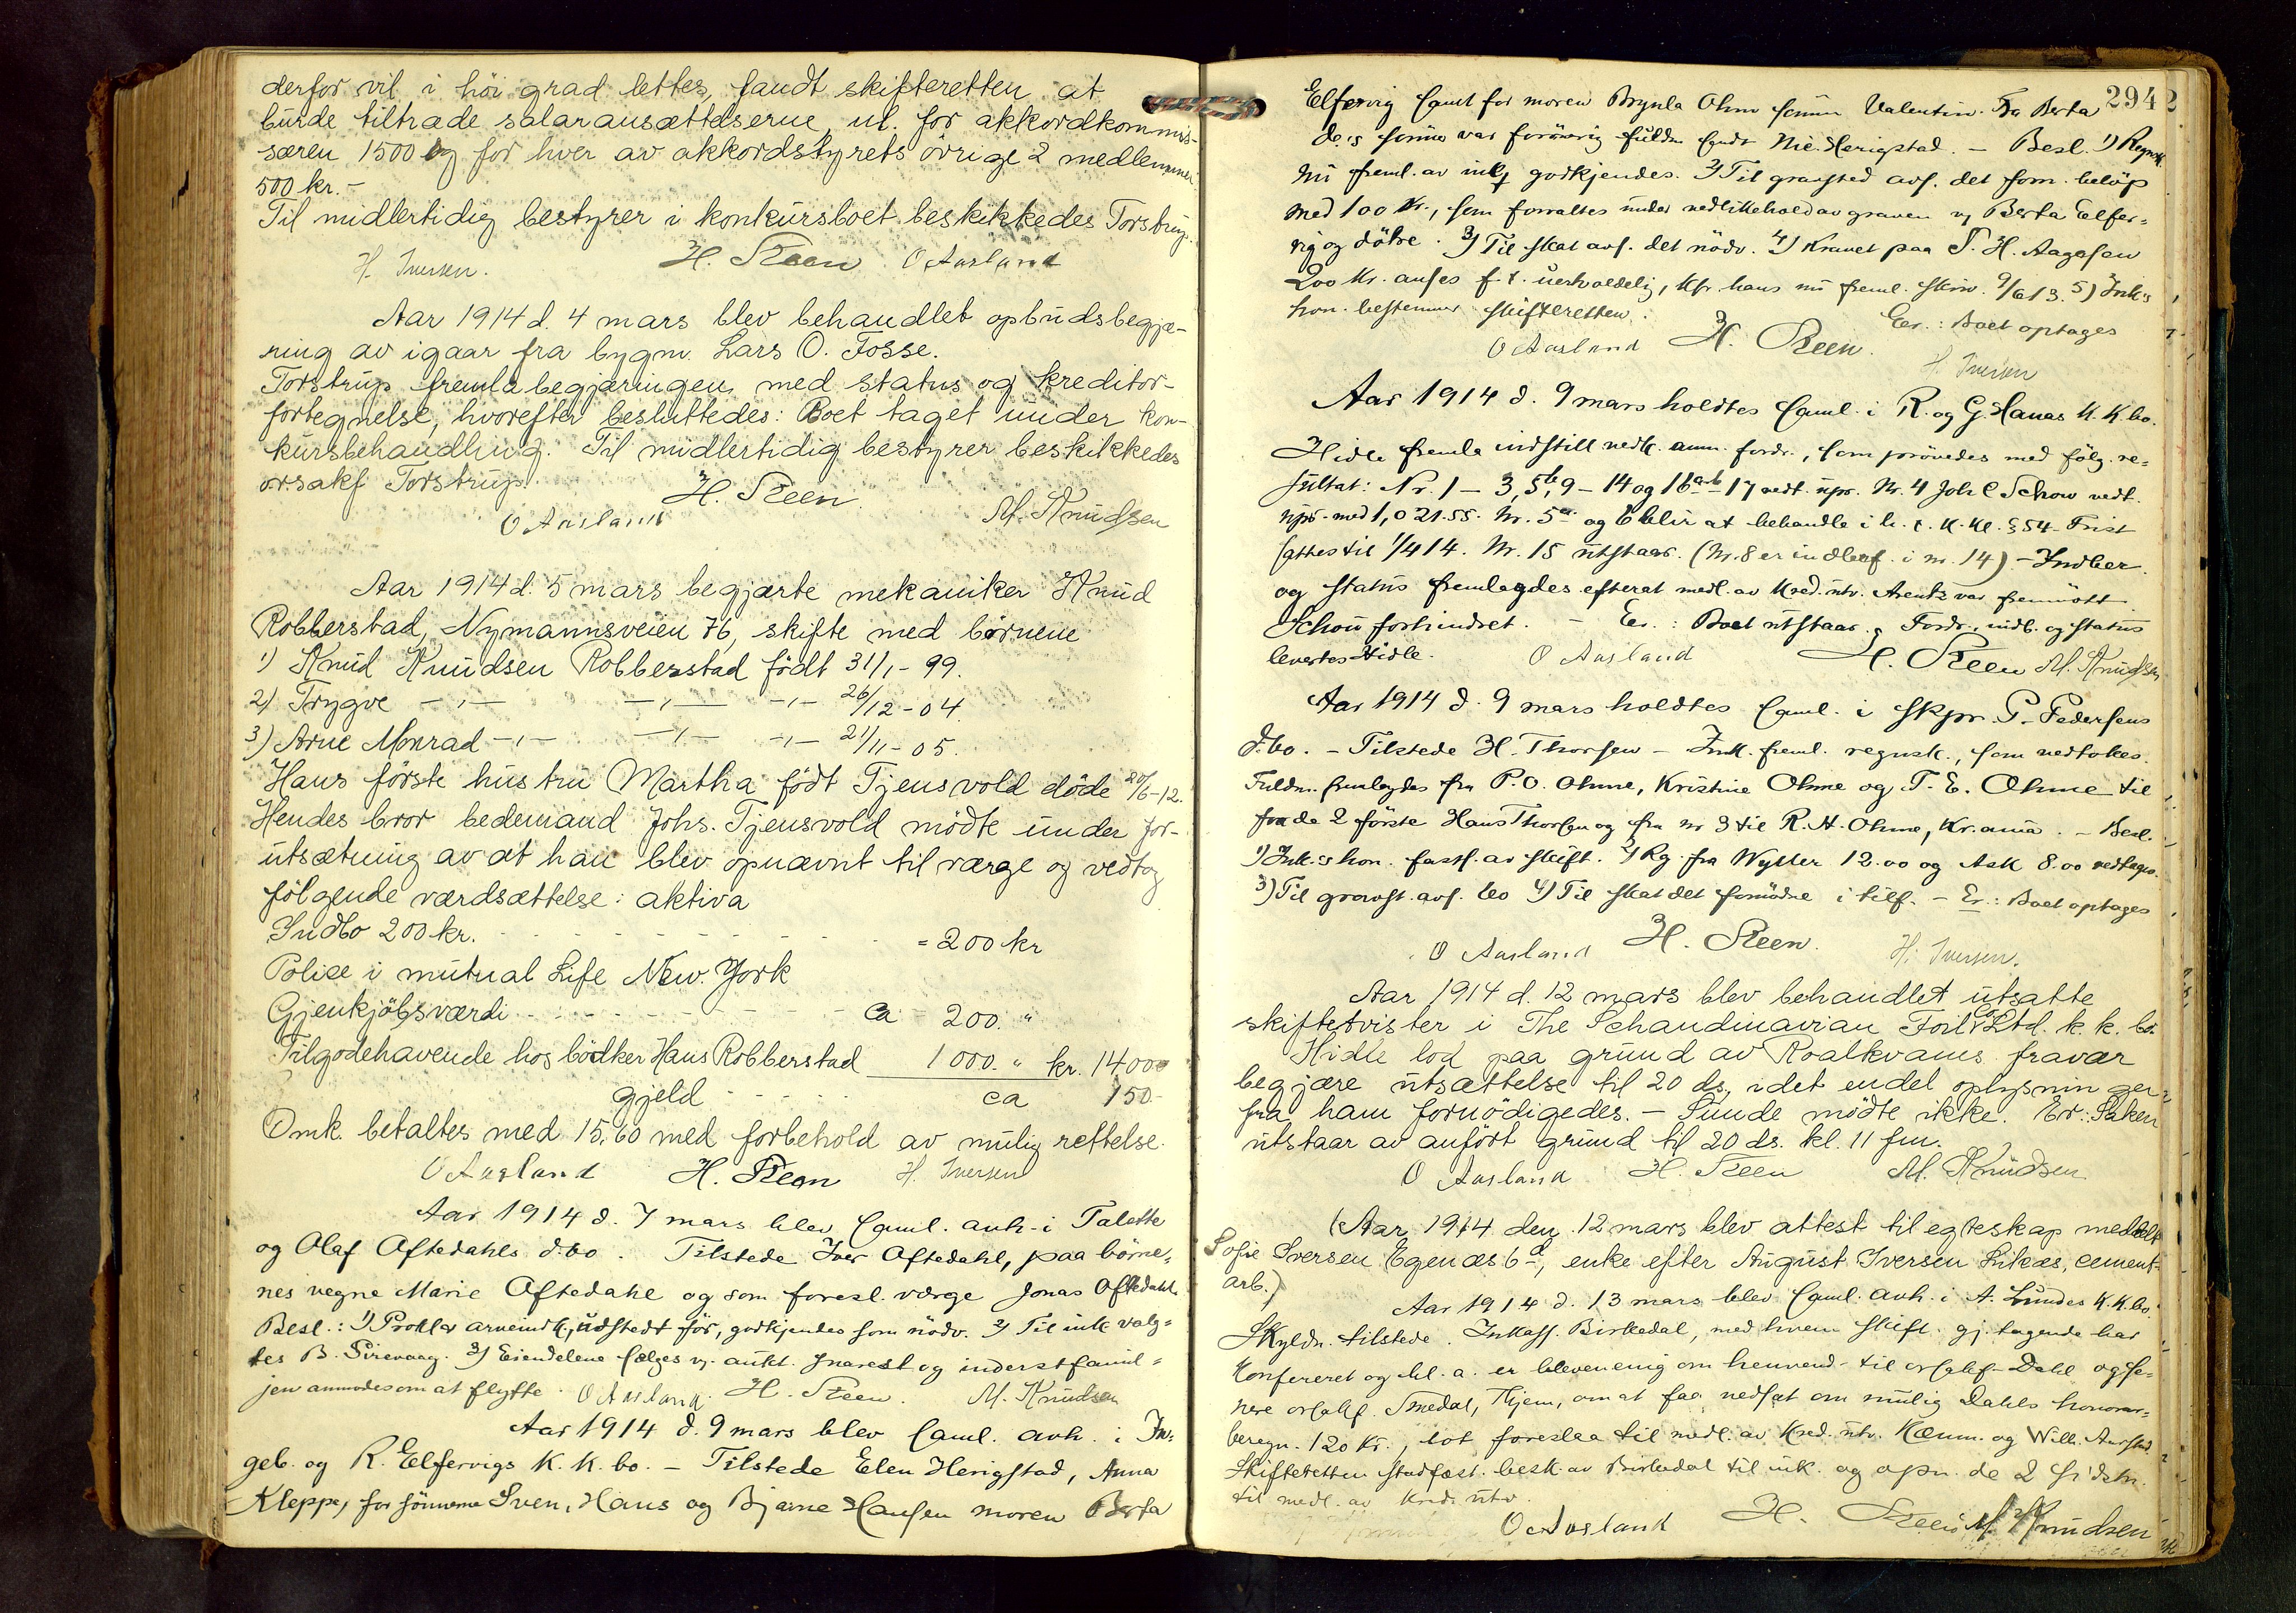 derfor vil i höi grad lettes, fandt skifteretten at
burde tiltræde salæransættelserne, nl. for akkordkommis-
særen 1500 og for hver av akkordstyrets övrige 2 medlemmer
500 kr. -
Til midlertidig bestyrer i konkursboet beskikkedes Torstrup.
H. Iversen. H. Steen O Aasland
Aar 1914 d. 4 mars blev behandlet opbudsbegjæ-
ring av igaar fra bygm. Lars O. Fosse.
Torstrup fremla begjæringen med status og kreditor-
fortegnelse, hvorefter besluttedes: Boet taget under kon-
kursbehandling. Til midlertidig bestyrer beskikkedes
o.r.sakf Torstrup.
O Aasland H. Steen M. Knudsen
Aar 1914 d. 5 mars begjærte mekaniker Knud
Robberstad, Nymannsveien 76, skifte med börnene
1) Knud Knudsen Robberstad födt 31/1-99.
2) Trygve -,- -,- -,- 26/12-04.
3) Arne Monrad -,- -,- -,- 21/11-05.
Hans förste hustru Martha födt Tjensvold döde 20/6-12.
Hendes bror bedemand Johs. Tjensvold mödte under for-
utsætning av at han blev opnævnt til værge og vedtog
fölgende værdsættelse: aktiva
Indbo 200 kr. = 200 kr
Police i mutual Life New. York
Gjenkjöbsværdi ca 200. "
Tilgodehavende hos bödker Hans Robberstad 1000. " kr. 1400
gjeld ca 150-
Omk. betaltes med 15,60 med forbehold av mulig rettelse.
O Aasland H. Steen H. Iversen
Aar 1914 d. 7 mars blev saml. avh. i Talette
og Olaf Oftedahls d.bo. Tilstede Iver Oftedahl, paa börne-
nes vegne Marie Oftedahl og som foresl. værge Jonas Oftedahl.
Besl.: 1) Proklav arveindk, udstedt för, godkjendes som nödv. 2) Til ink valg-
tes B. Sirevaag. 3) Eiendelene sælges v. aukt. snarest og inderstfamil-
jen anmodes om at flytte. O Aasland. H. Steen. M. Knudsen
Aar 1914 d. 9 mars blev saml. avh. i In-
geb. og R. Elfervigs K. K. bo. - Tilstede Elen Herigstad, Anna
Kleppe, for sönnerne Sven, Hans og Bjarne Hansen moren Berta
294
Elfervig samt for moren Brynla Ohm sönn Valentin. Fra Berta
de.s sönn var forövrig fuldm sendt Nic. Herigstad. - Besl. 1) Regnsk.
nu freml. av ink godkjendes. 2) Til gravsted avs. det forn. belöp
med 100 Kr., som forvaltes under vedlikehold av graven v Berta Elfer-
vig og dötre. 3) Til skat avs. det nödv. 4) Kravet paa T. H. Aagesen
200 Kr. anses f.t. uerholdelig, kfr. hans nu freml. skriv. 9/6 13. 5) Ink's
hon. bestemmes skifteretten. Er.: Boet optages
O Aasland H. Steen. H. Iversen
Aar 1914 d. 9 mars holdtes saml. i R. og G. Hanas K. K. bo.
Hidle fremla indstill vedk. anm. fordr., som prövedes med fölg. re-
sultat: Nr. 1 - 3, 5b, 9 - 14 og 16ab - 17 vedt. upr. Nr. 4 Joh C Schou vedt.
upr. med 1,021.55. Nr. 5a og 6 blir at behandle i h. t. K. Kl. § 54. Frist
sattes til 1/4 14. Nr. 15 utstaar. (Nr. 8 er indbef. i nr. 14) - Indber.
og status fremlagdes efterat medl. av Kred. utv. Arentz var fremmött
Schou forhindret. - Er.: Boet utstaar. Fordr., indb. og status
levertes Hidle. O Aasland H. Steen M. Knudsen
Aar 1914 d. 9 mars holdtes saml. i skpr. P. Pedersens
d.bo. - Tilstede H. Thorsen - Ink. freml. regnsk., som vedtokes.
Fuldm. fremlagdes fra P. O. Ohme, Kristine Ohme og T. E. Ohme til
fra de 2 förste Hans Thorsen og fra nr 3 til R. H. Ohme, Kr.ania. - Besl.
1) Ink.s hon. fasts. av skift. 2) Rg. fra Wyller 12.00 og Ask 8.00 vedtages.
3) Til gravst. avs. 60 4) Til skat det fornödne i tilf. - Er.: Boet optages
O Aasland H. Steen. H. Iversen.
Aar 1914 d. 12 mars blev behandlet utsatte
skiftetvister i The Schandinavian Foil Co Ltd. k. k. bo
Hidle lod paa grund av Roalkvams fravær
begjære utsættelse til 20 ds, idet endel oplysninger
fra ham fornödigedes. - Sunde mödte ikke. Er: Saken
utstaar av anfört grund til 20 ds. kl. 11 fm.
O Aasland H. Steen M. Knudsen
(Aar 1914 den 12 mars blev attest til egteskap meddelt
Sofie Iversen Egenæs 6d, enke efter August Iversen Litlæs, cement-
arb.)
Aar 1914 d. 13 mars blev saml. avh. i A. Lundes K.K.bo.
Skyldn. tilstede. Inkass. Birkedal, med hvem skift. gj. tagende har
konfereret og bl. a. er bleven enig om henvend. til orsakf. Dahl og se-
nere orsakf. Smedal, Hjem, om at faa nedsat om mulig Dahls honorar-
beregn. 120 Kr., lot foreslaa til medl. av Kred. utv. Kæmn. og Wilh. Aarstad.
Skifteretten stadfæst. besk. av Birkedal til ink. og opn. de 2 sidstn.
til medl. av Kred. utv.
O Aasland H. Steen M. Knudsen